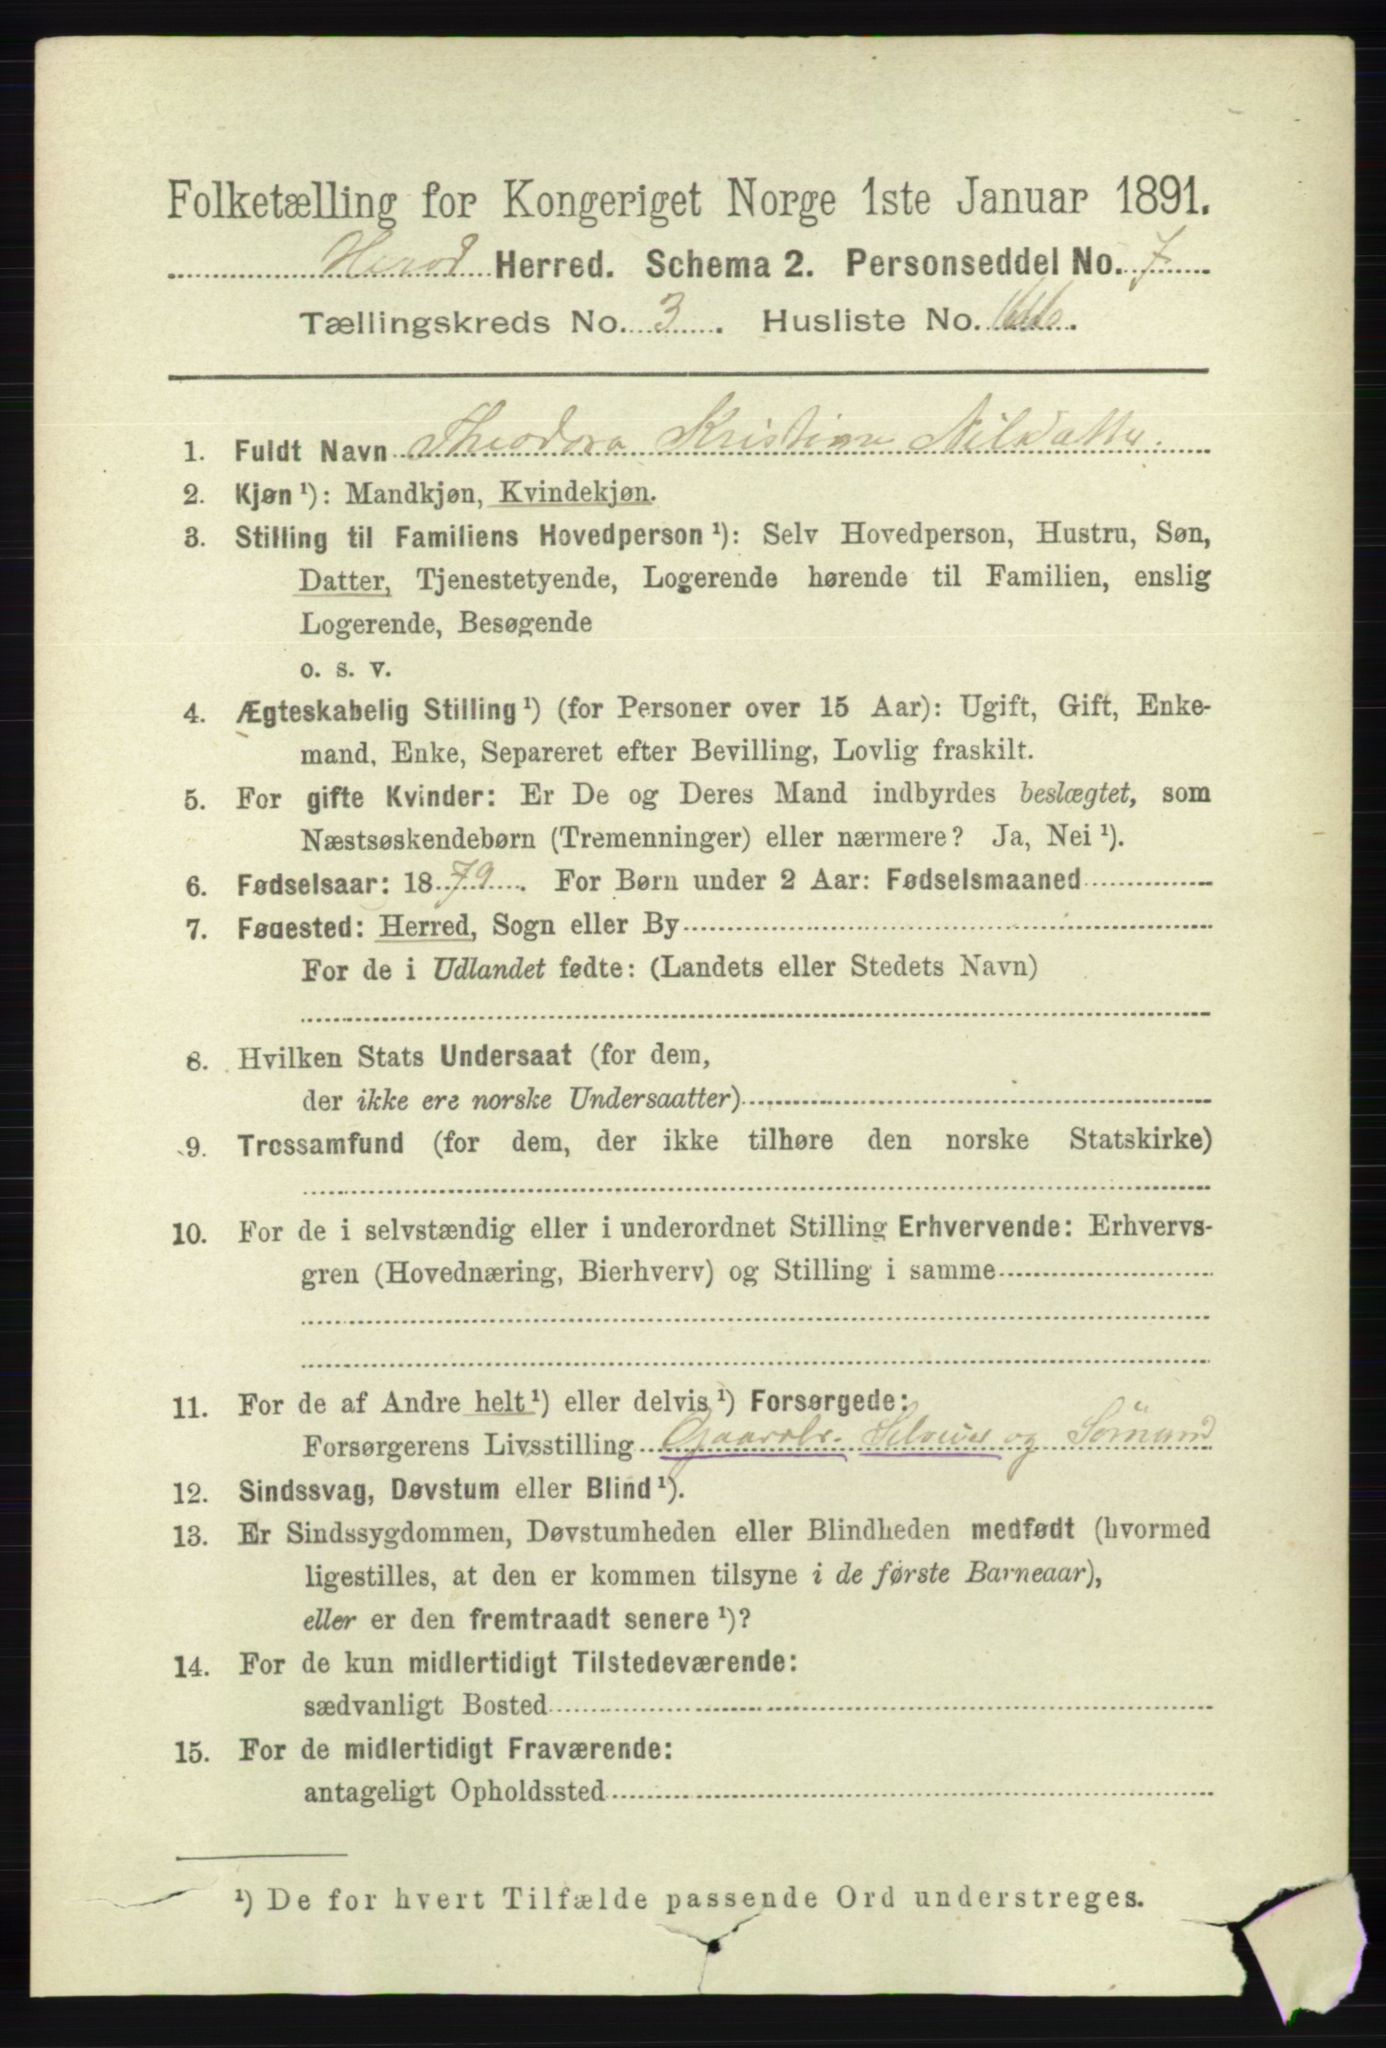 Folketælling for Kongeriget Norge 1ste Januar 1891.
Herred. Schema 2. Personseddel No. 7
Tællingskreds No. 3. Husliste No.
1. Fuldt Navn Theodora Kristine Nilsdatter.
2. Kjøn ¹): Mandkjøn, Kvindekjøn.
3. Stilling til Familiens Hovedperson ¹): Selv Hovedperson, Hustru, Søn,
Datter, Tjenestetyende, Logerende hørende til Familien, enslig
Logerende, Besøgende
o. s. v.
4. Ægteskabelig Stilling ¹) (for Personer over 15 Aar): Ugift, Gift, Enke-
mand, Enke, Separeret efter Bevilling, Lovlig fraskilt.
5. For gifte Kvinder: Er De og Deres Mand indbyrdes beslægtet, som
Næstsøskendebørn (Tremenninger) eller nærmere? Ja, Nei ¹).
6. Fødselsaar: 1879. For Børn under 2 Aar: Fødselsmaaned
7. Fødested: Herred, Sogn eller By
For de i Udlandet fødte: (Landets eller Stedets Navn)
8. Hvilken Stats Undersaat (for dem,
der ikke ere norske Undersaatter)
9. Trossamfund (for dem, der ikke tilhøre den norske Statskirke)
10. For de i selvstændig eller i underordnet Stilling Erhvervende: Erhvervs-
gren (Hovednæring, Bierhverv) og Stilling i samme
11. For de af Andre helt ¹) eller delvis ¹) Forsørgede:
Forsørgerens Livsstilling Gaardbr. Selveier og Sömand
12. Sindssvag, Døvstum eller Blind ¹).
13. Er Sindssygdommen, Døvstumheden eller Blindheden medfødt (hvormed
ligestilles, at den er kommen tilsyne i de første Barneaar),
eller er den fremtraadt senere ¹)?
14. For de kun midlertidigt Tilstedeværende:
sædvanligt Bosted
15. For de midlertidigt Fraværende:
antageligt Opholdssted
¹) De for hvert Tilfælde passende Ord understreges.